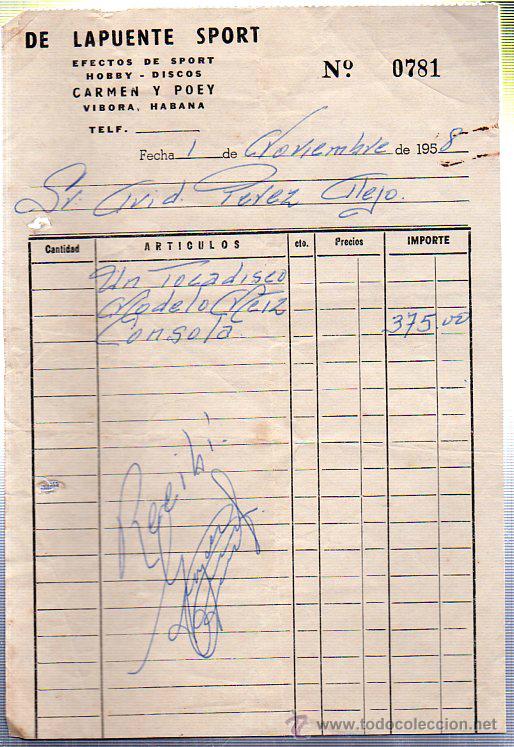 DE LAPUENTE SPORT
EFECTOS DE SPORT
HOBBY - DISCOS
CARMEN Y POEY
VIBORA, HABANA
TELF.
Nº 0781
Fecha 1 de Noviembre de 1958
Sr. Ovid. Perez Alejo.
Cantidad ARTICULOS cto. Precios IMPORTE
Un Tocadisco
Modelo
Consola. 375.00
Recibí
www.todocoleccion.net